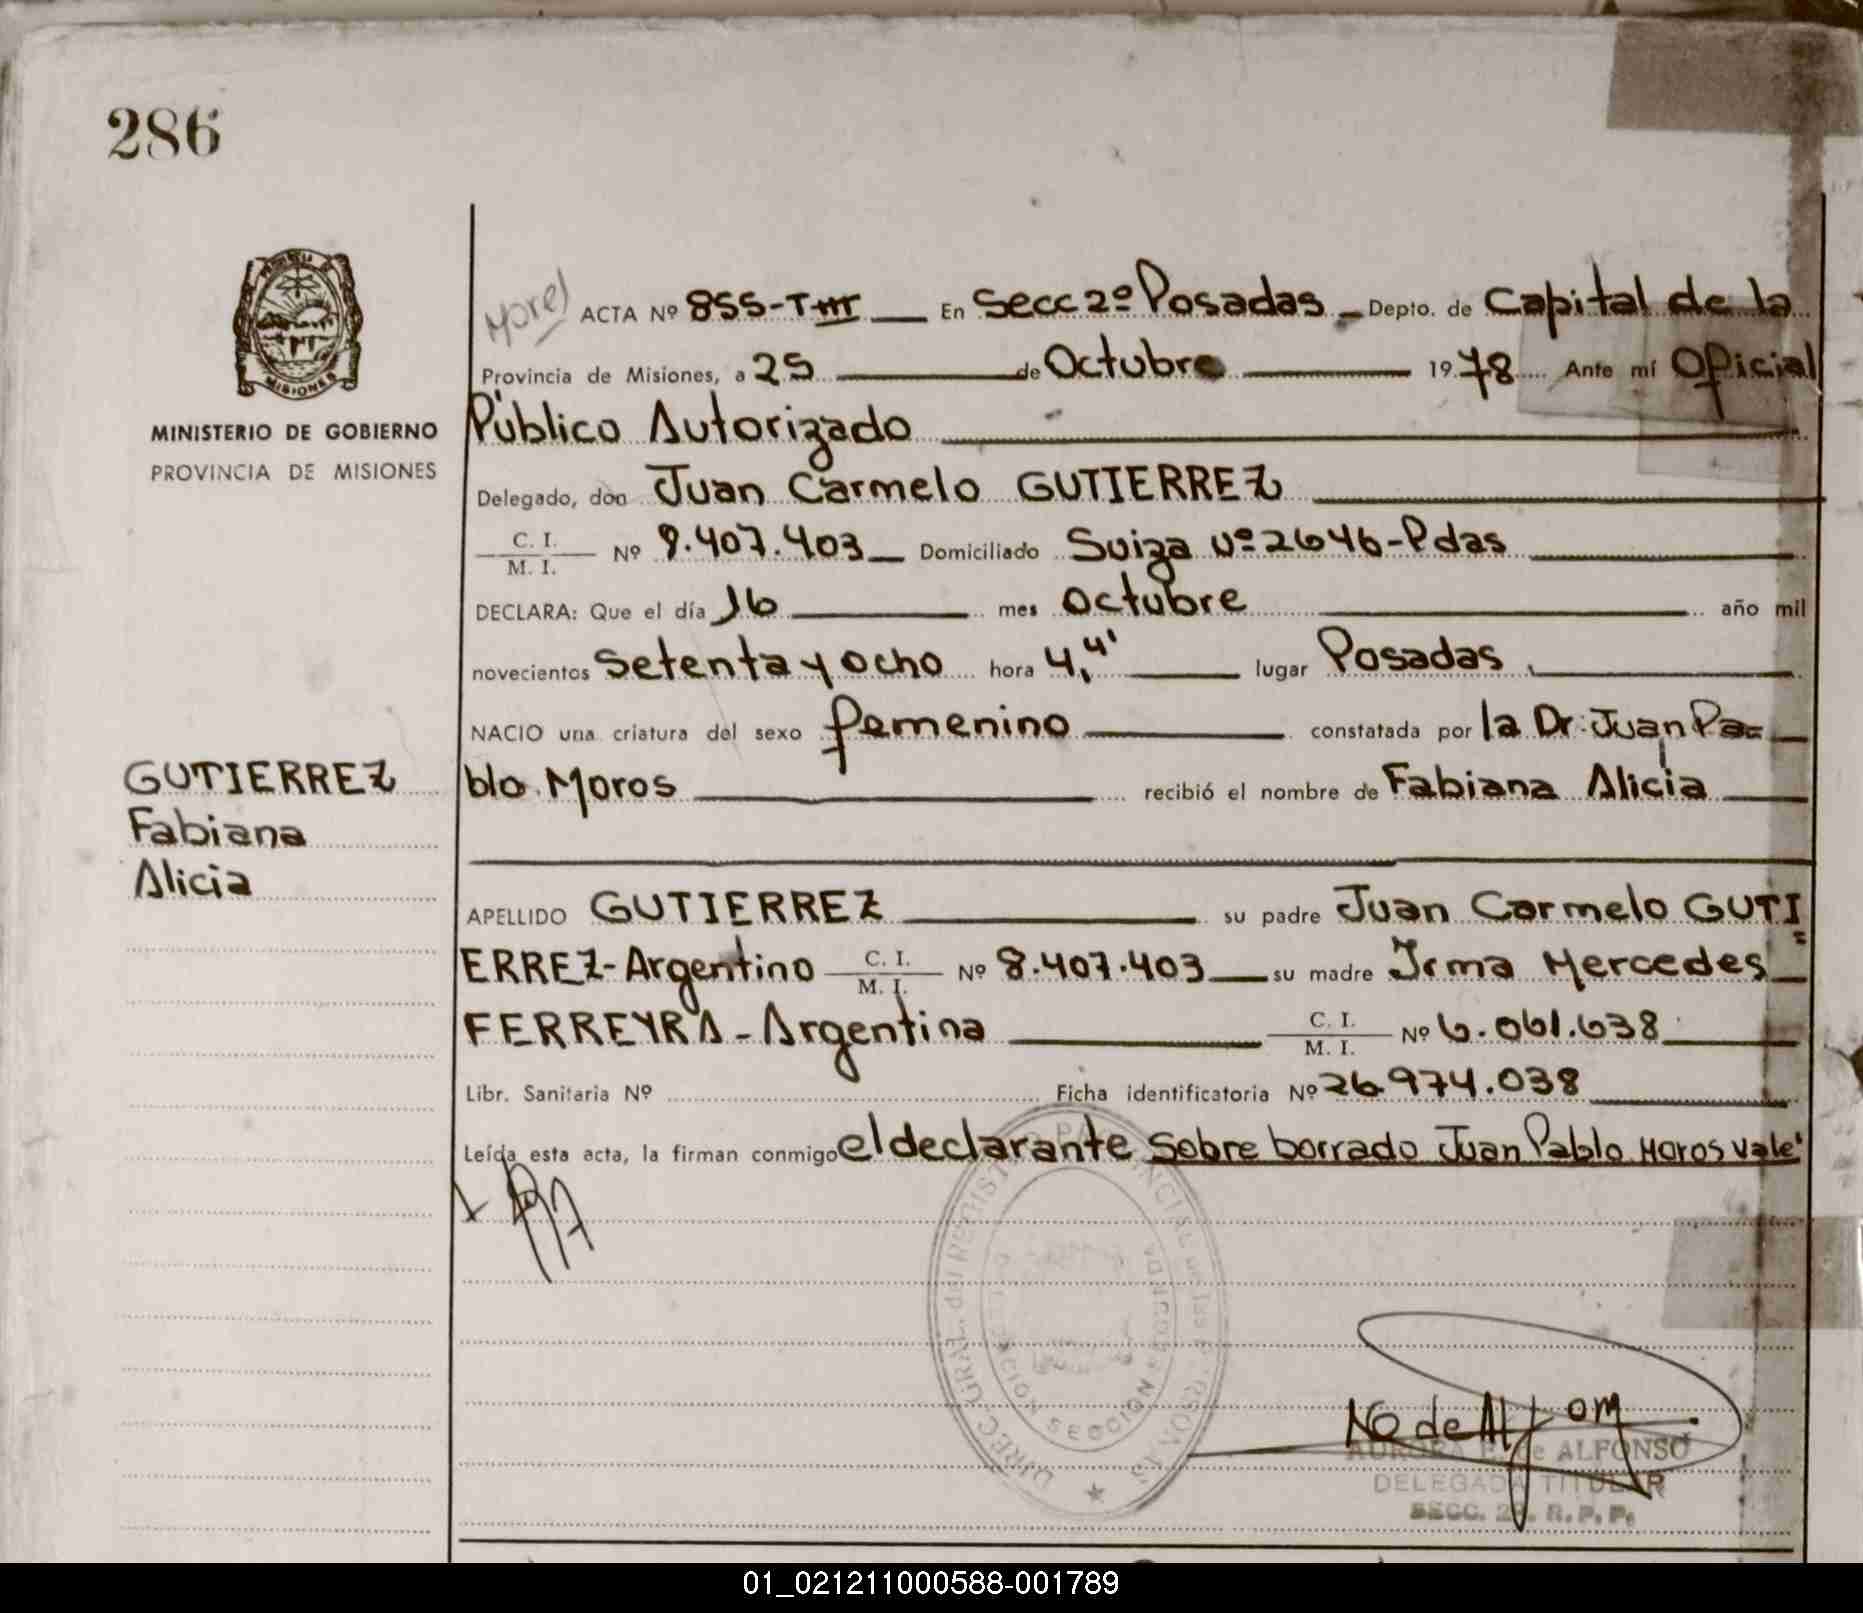 286
Morel ACTA Nº 855-T III En Secc 2º Posadas Depto. de Capital de la
Provincia de Misiones, a 25 de Octubre 1978 Ante mí Oficial
MINISTERIO DE GOBIERNO
PROVINCIA DE MISIONES
Público Autorizado
Delegado, don Juan Carmelo GUTIERREZ
C. I.
M. I. Nº 8.407.403 Domiciliado Suiza Nº 2646-Pdas
DECLARA: Que el día 16 mes Octubre año mil
novecientos Setenta y ocho hora 4,4' lugar Posadas
NACIO una criatura del sexo femenino constatada por la Dr. Juan Pa=
blo Moros recibió el nombre de Fabiana Alicia
GUTIERREZ
Fabiana
Alicia
APELLIDO GUTIERREZ su padre Juan Carmelo GUTI=
ERREZ-Argentino C. I. M. I. Nº 8.407.403 su madre Irma Mercedes
FERREYRA-Argentina C. I. M. I. Nº 6.061.638
Libr. Sanitaria Nº Ficha identificatoria Nº 26.974.038
Leída esta acta, la firman conmigo el declarante Sobre borrado Juan Pablo Moros vale'
DIREC. GRAL. del REGISTRO PROVINCIAL
SECCION SEGUNDA
POSADAS
de ALFONSO
DELEGADA TITULAR
SECC. 2ª. R. P. P.
01_021211000588-001789